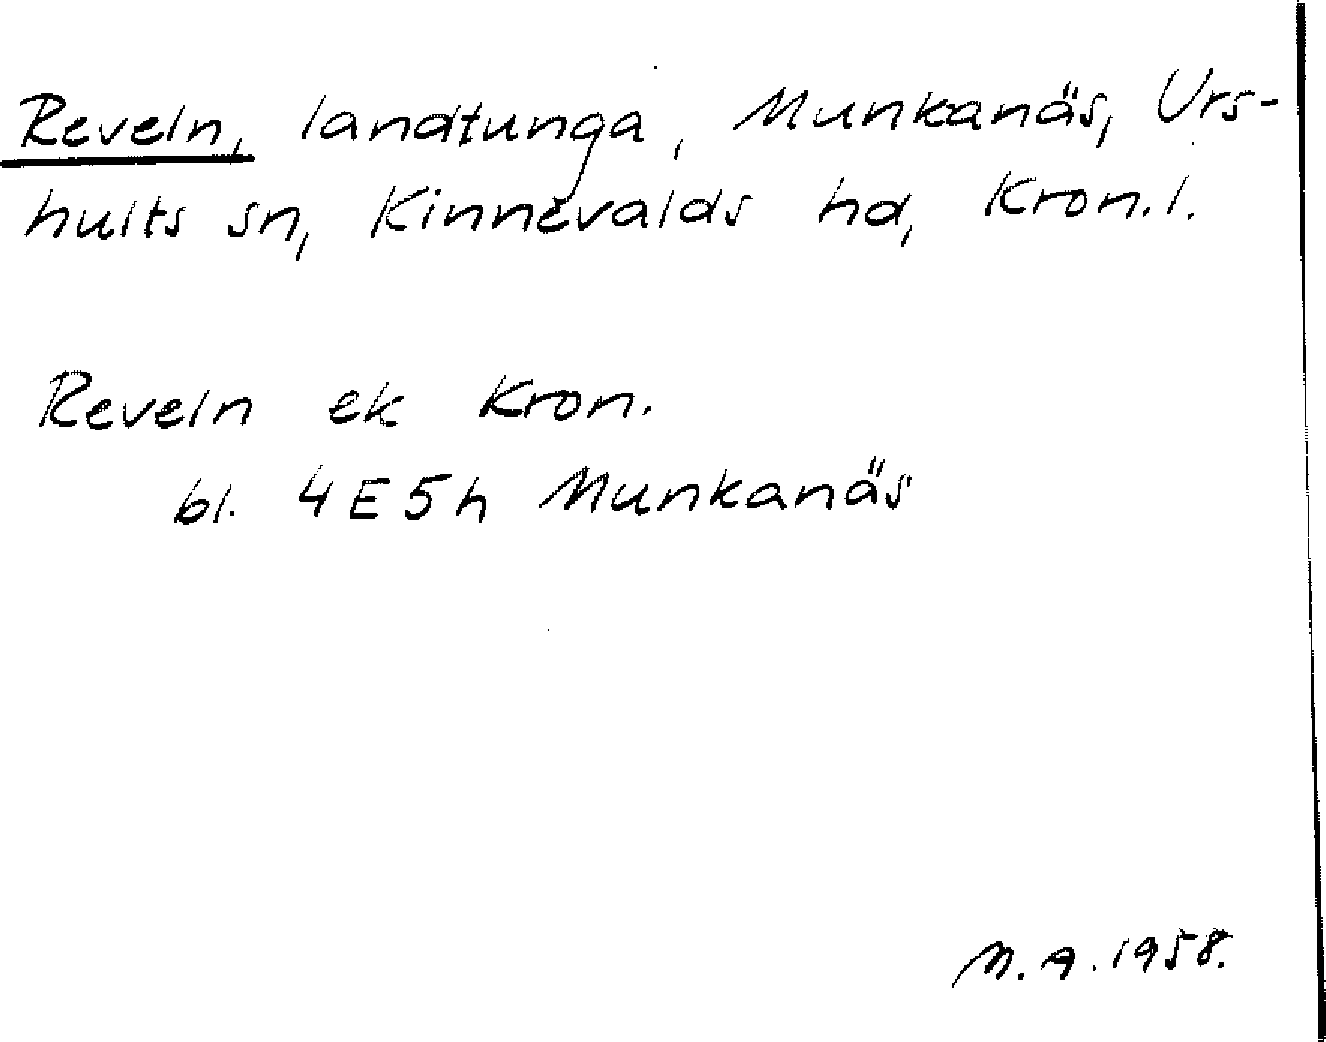 Reveln, landtunga, Munkanäs, Urs-
hults sn, Kinnevalds hd, Kron.l.
Reveln ek Kron.
bl. 4E5h Munkanäs
M.A. 1958.